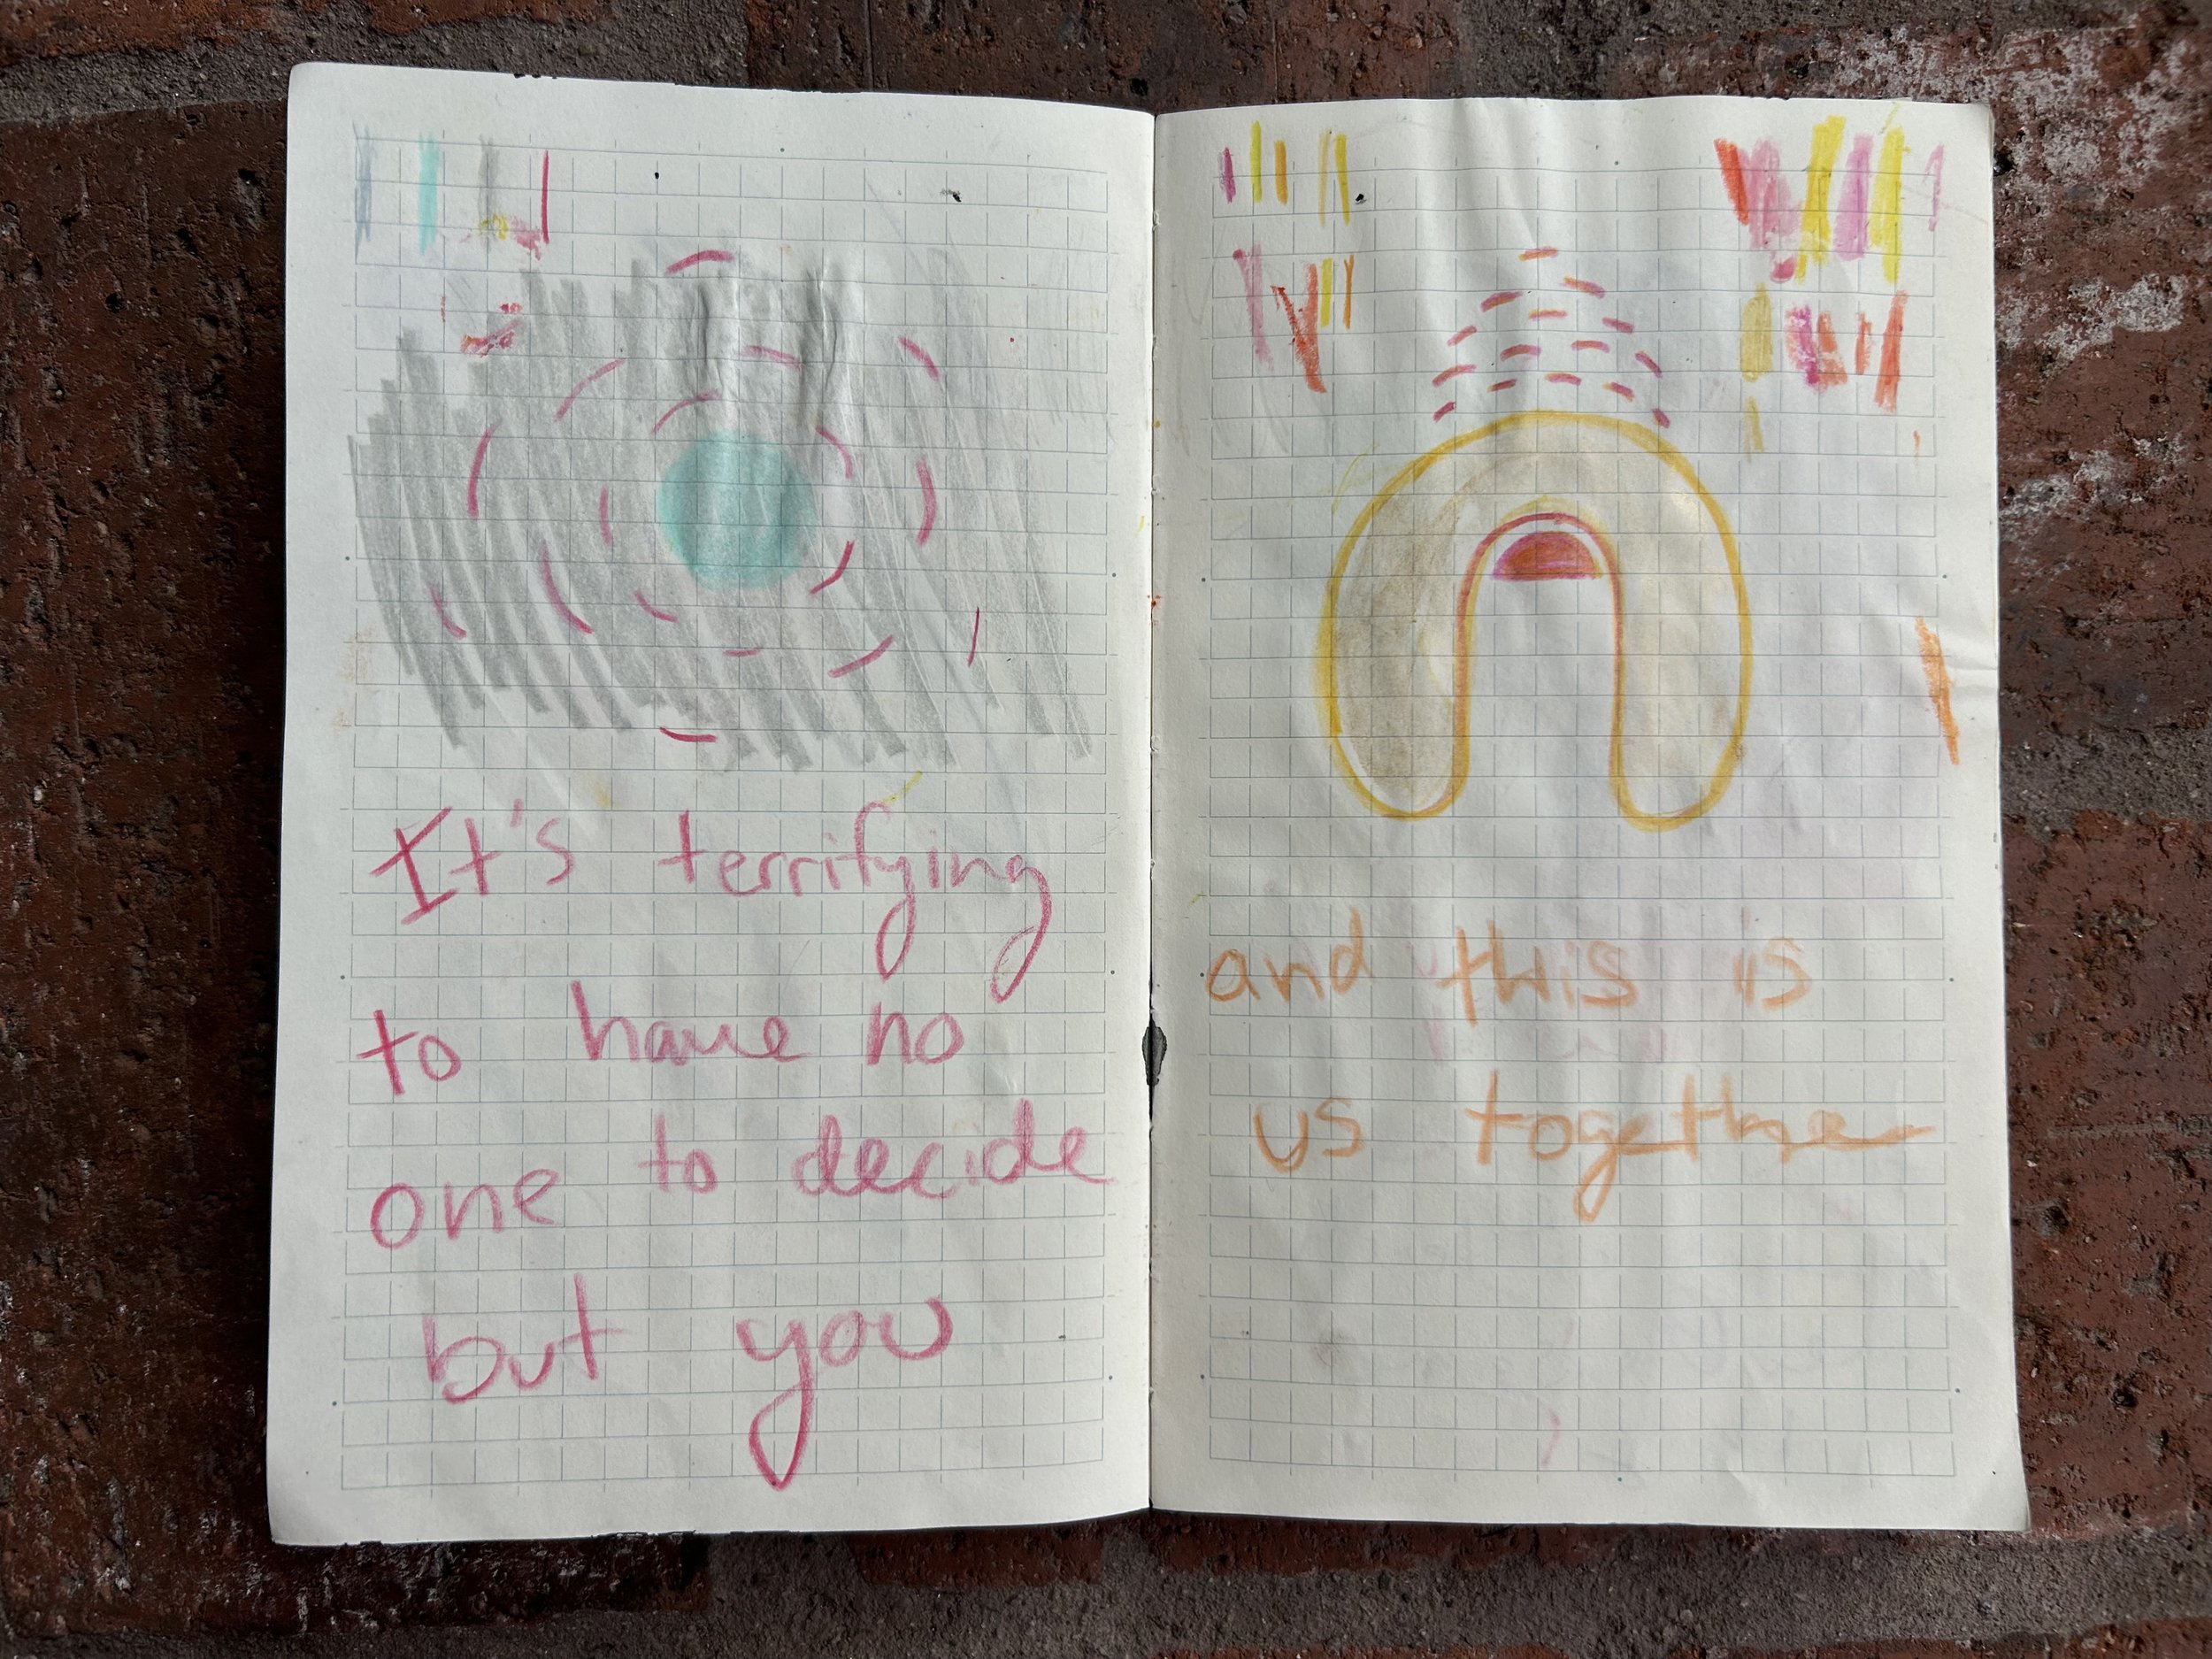 It's terrifying
to have no
one to decide
but you
and this is
us together